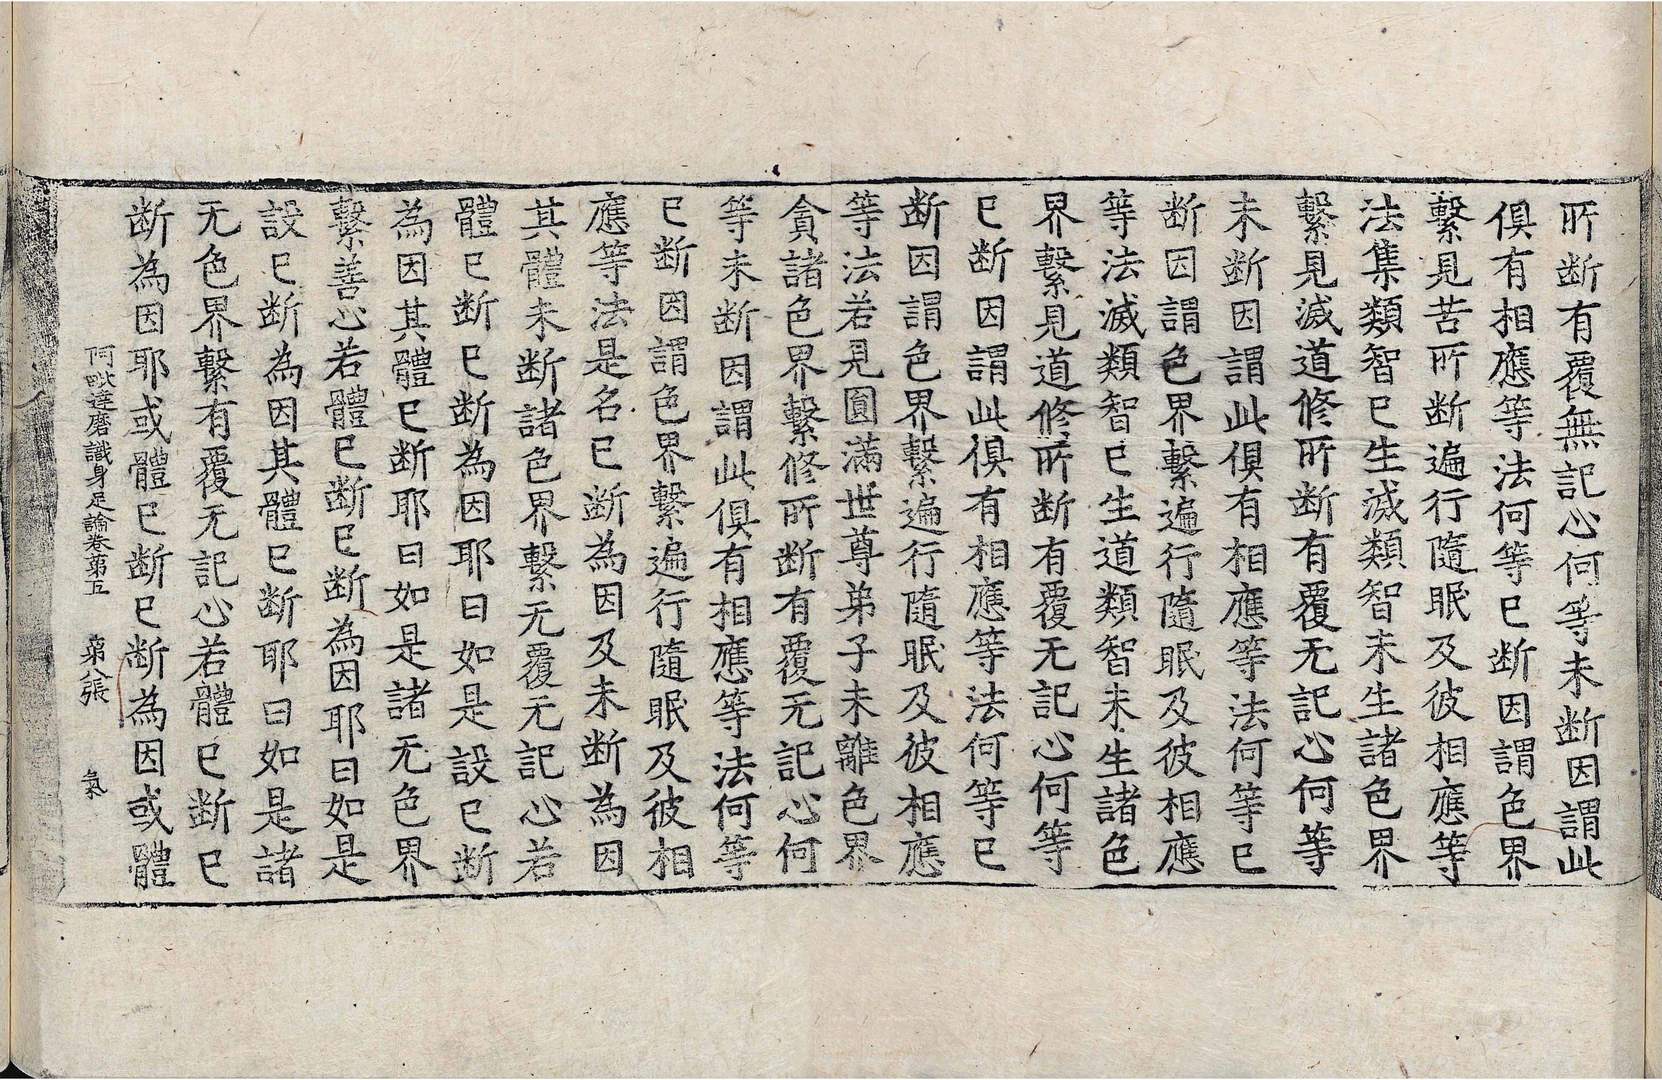 所断有覆無記心何等未断因謂此
俱有相應等法何等已断因謂色界
繫見苦所断遍行隨眠及彼相應等
法集類智已生滅類智未生諸色界
繫見滅道修所断有覆无記心何等
未断因謂此俱有相應等法何等已
断因謂色界繫遍行隨眠及彼相應
等法滅類智已生道類智未生諸色
界繫見道修所断有覆无記心何等
已断因謂此俱有相應等法何等已
断因謂色界繫遍行隨眠及彼相應
等法若見圓滿世尊弟子未離色界
貪諸色界繫修所断有覆无記心何
等未断因謂此俱有相應等法何等
已断因謂色界繫遍行隨眠及彼相
應等法是名已断為因及未断為因
其體未断諸色界繫无覆无記心若
體已断已断為因耶曰如是設已断
為因其體已断耶曰如是諸无色界
繫善心若體已断已断為因耶曰如是
設已断為因其體已断耶曰如是諸
无色界繫有覆无記心若體已断已
断為因耶或體已断已断為因或體
阿毗達磨識身足論卷第五 第八張 氣